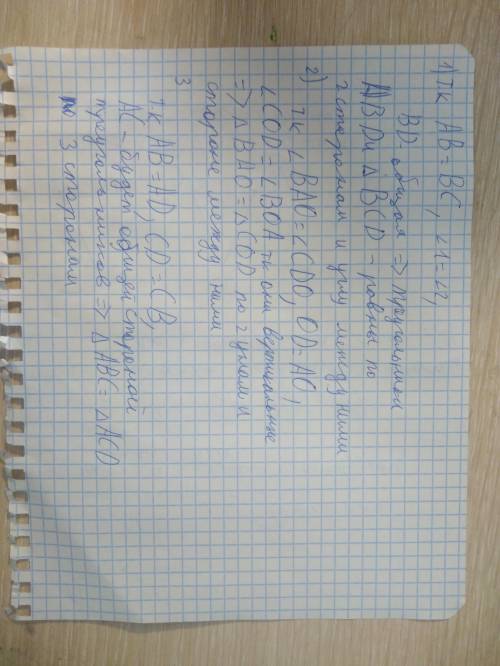 1) Тк АВ=ВС, ∠1=∠2,
BD-общая => треугольники
ABD и △ BCD - ровны по
2 сторонам и углу между ними
2) тк ∠BAO=∠CDO, OD=AO,
∠COD=∠BOA тк они вертикальные
=> △ BAO=△COD по 2 углам и
стороне между ними
3
тк AB=AD, CD=CB,
AC-будет общей стороной
треугольников => △ABC=△ACD
по 3 сторонам